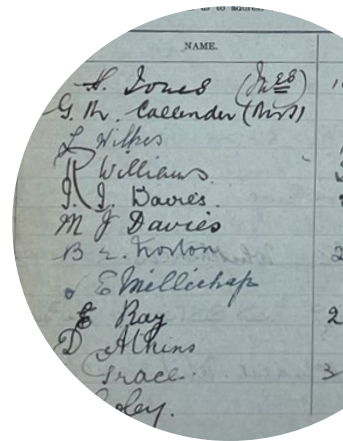 us to address
NAME.
H. Jones (Mrs)
G. M. Callender (Mrs)
L Wilkes
R Williams
I. J. Davies.
M J Davies
B E. Norton
J E Millichap
E Ray
D Atkins
Grace.
oley.